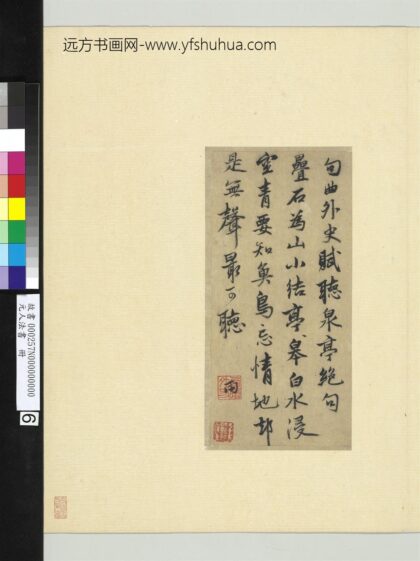 远方书画网-www.yfshuhua.com
句曲外史賦聽泉亭絕句
疊石為山小結亭〻皋白水浸
空青要知魚鳥忘情地却
是無聲最可聽
雨
故書 000257N000000000
元人法書 冊
6